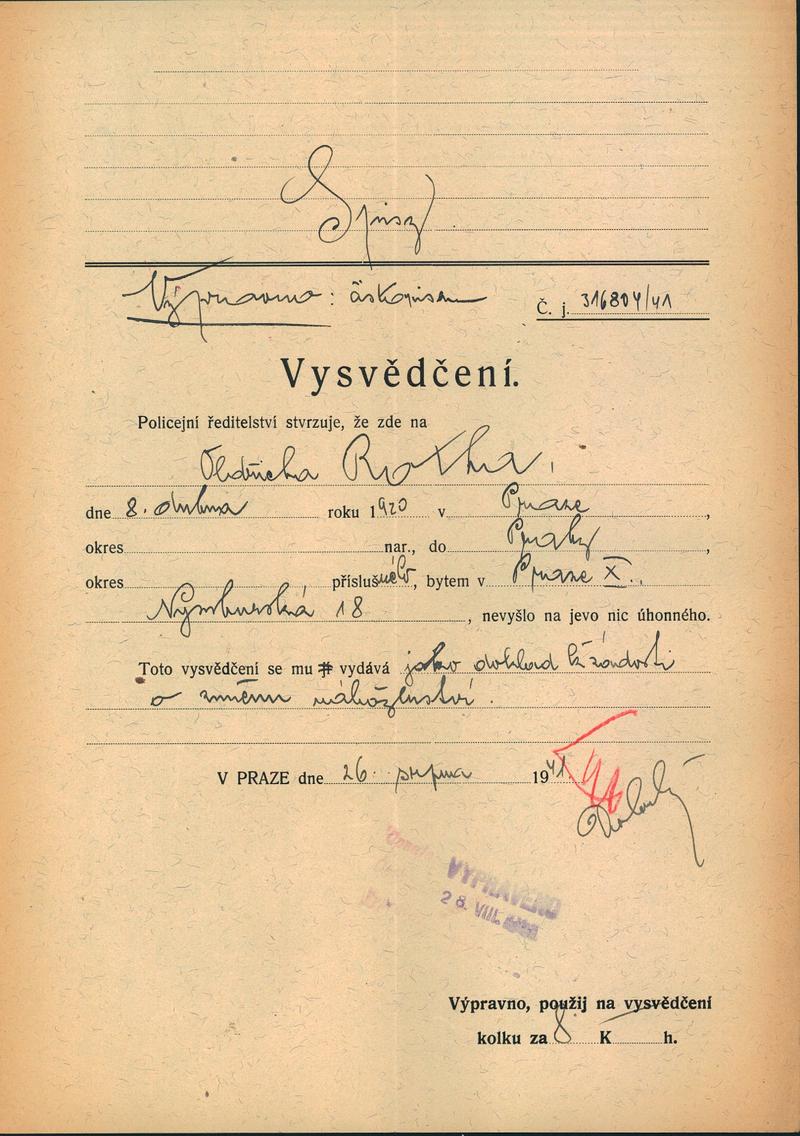 Spisy
Výpravno: tiskopisem
Č. j. 316804/41
Vysvědčení.
Policejní ředitelství stvrzuje, že zde na
Oldřicha Rotha,
dne 8. dubna roku 1920 v Praze,
okres nar., do Prahy,
okres příslušného, bytem v Praze X.,
Nymburská 18, nevyšlo na jevo nic úhonného.
Toto vysvědčení se mu vydává jako doklad k žádosti
o změnu náboženství.
V PRAZE dne 26. srpna 1941.
VYPRAVENO
28. VIII. 1941
Výpravno, použij na vysvědčení
kolku za 8 K h.